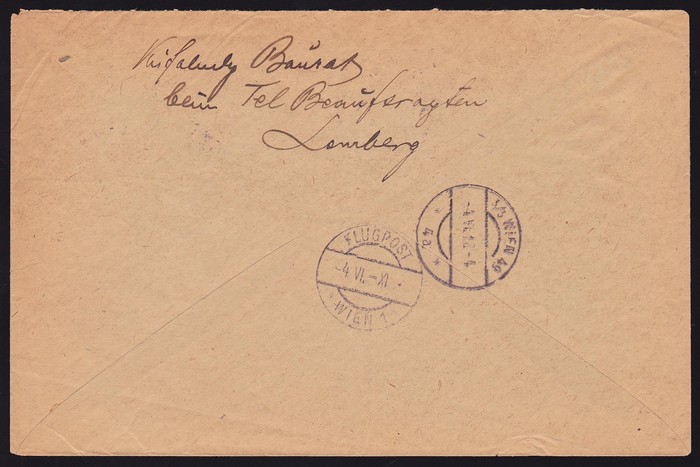 Kisfaludy Baurat
beim Tel Beaufsragten
Lemberg
1/1 WIEN 49
-4.VI.18-4
* 4a. *
FLUGPOST
-4.VI.-XI-
* WIEN 1 *